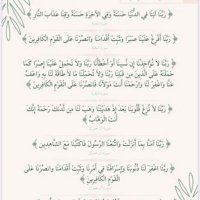 ﴿ ربنا آتنا في الدنيا حسنة وفي الآخرة حسنة وقنا عذاب النار ﴾
﴿ ربنا أفرغ علينا صبرا وثبت أقدامنا وانصرنا على القوم الكافرين ﴾
﴿ ربنا لا تؤاخذنا إن نسينا أو أخطأنا ربنا ولا تحمل علينا إصرا كما
حملته على الذين من قبلنا ربنا ولا تحملنا ما لا طاقة لنا به واعف
عنا واغفر لنا وارحمنا أنت مولانا فانصرنا على القوم الكافرين ﴾
﴿ ربنا لا تزغ قلوبنا بعد إذ هديتنا وهب لنا من لدنك رحمة إنك
أنت الوهاب ﴾
﴿ ربنا آمنا بما أنزلت واتبعنا الرسول فاكتبنا مع الشاهدين ﴾
﴿ ربنا اغفر لنا ذنوبنا وإسرافنا في أمرنا وثبت أقدامنا وانصرنا على
القوم الكافرين ﴾